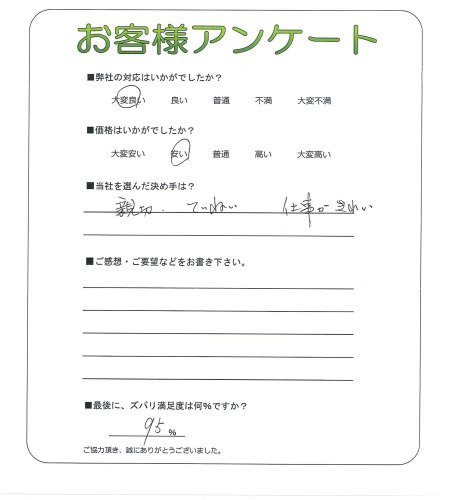 お客様アンケート
■弊社の対応はいかがでしたか？
大変良い 良い 普通 不満 大変不満
■価格はいかがでしたか？
大変安い 安い 普通 高い 大変高い
■当社を選んだ決め手は？
親切. ていねい 仕事が きれい
■ご感想・ご要望などをお書き下さい。
■最後に、ズバリ満足度は何%ですか？
95 %
ご協力頂き、誠にありがとうございました。